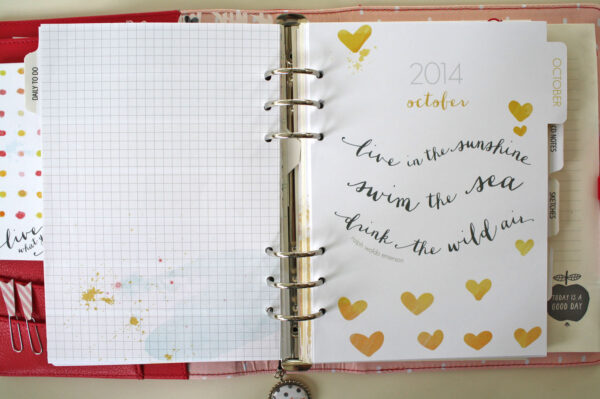 DAILY TO DO
live
what
2014
october
live in the sunshine
swim the sea
drink the wild air
ralph waldo emerson
OCTOBER
NOTES
SKETCHES
TODAY IS A
GOOD DAY